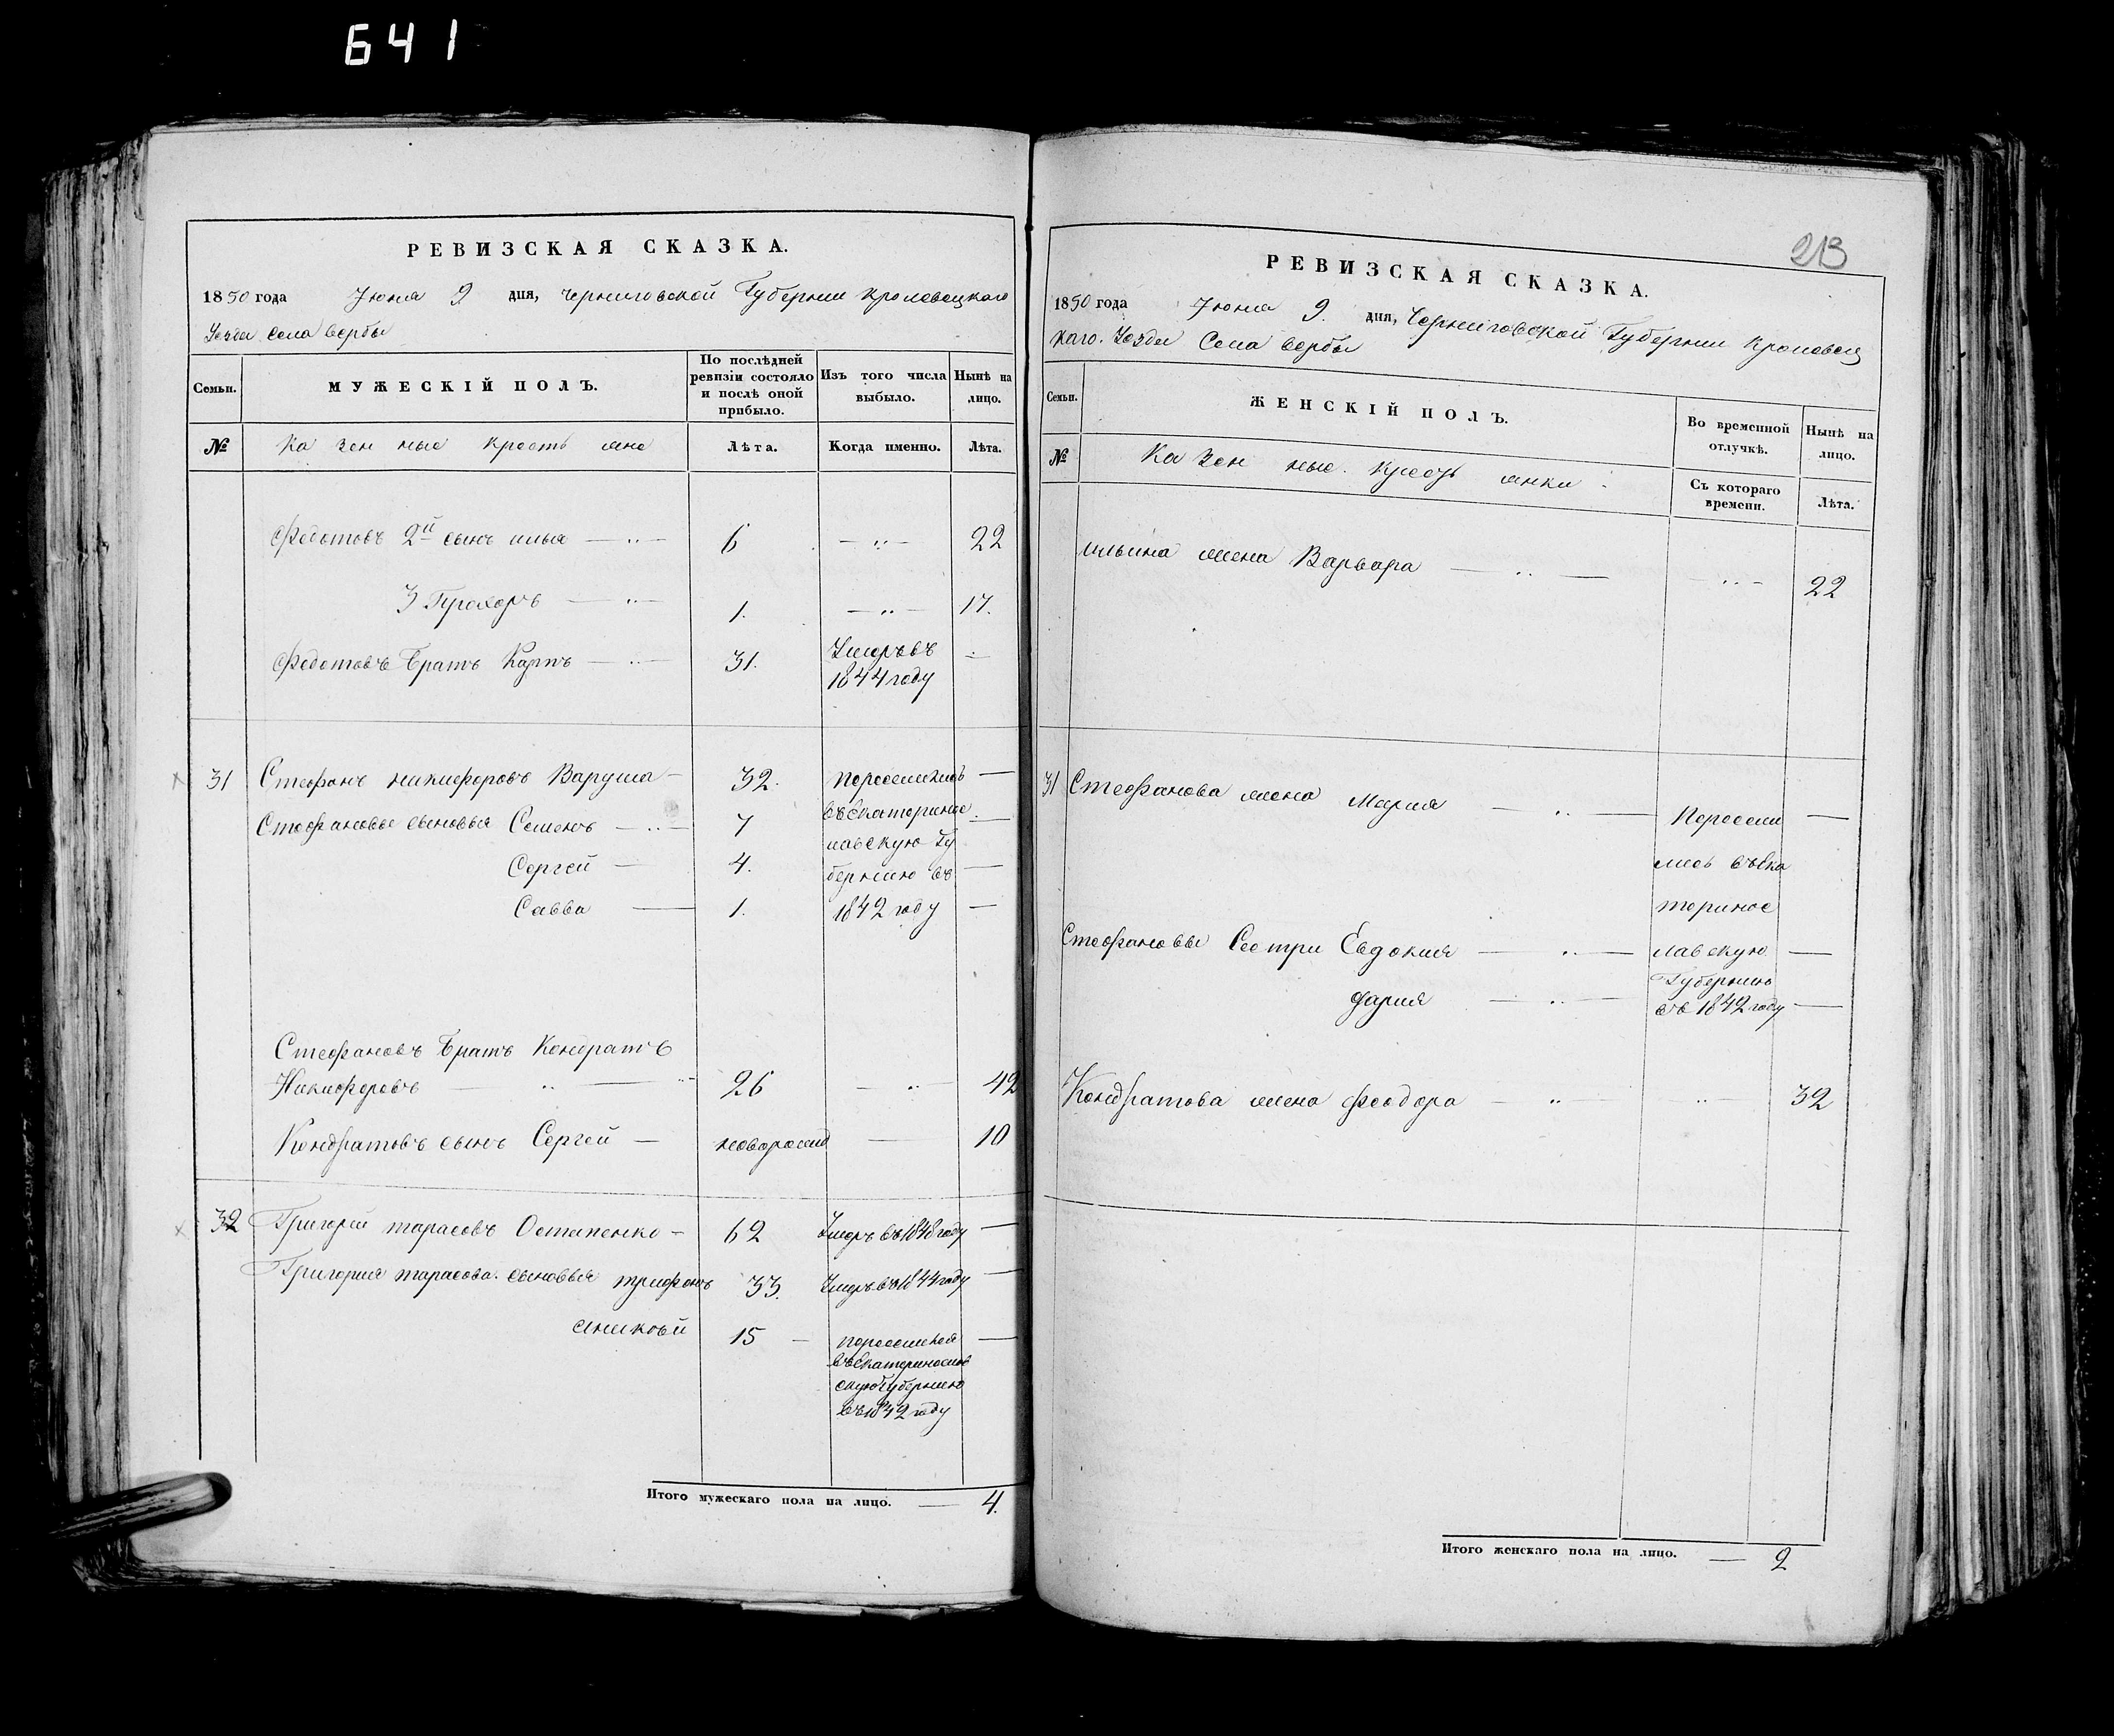 641
РЕВИЗСКАЯ СКАЗКА.
1850 года Июня 9 дня, Черниговской Губернии Кролевецкаго
Уезда Села Вербы
Семьи. МУЖЕСКІЙ ПОЛЪ. По послѣдней ревизіи состояло и послѣ оной прибыло. Изъ того числа выбыло. Нынѣ на лицо.
№ Казенные крестьяне Лѣта. Когда именно. Лѣта.
Федотовъ 2й сынъ илья 6 22
3 Прохоръ 1. 17.
Федотовъ Братъ Карпъ 31. Умеръ въ
1844 году
31 Стефанъ никифоровъ Варуша 32. переселились
Стефановы сыновья Семенъ 7 въ Екатеринос
лавскую Гу
Сергей 4. бернию въ
Савва 1. 1842 году
Стефановъ Братъ Кондратъ
Никифоровъ 26 42
Кондратовъ сынъ Сергей новорожд 10
32 Григорей тарасовъ Остапенко 62 Умеръ въ 1848 году
Григория тарасова сыновья трифонъ 33. Умеръ въ 1844 году
15 переселился
въ Екатеринослав
скую Губернию
въ 1842 году
Итого мужескаго пола на лицо. 4.
213
РЕВИЗСКАЯ СКАЗКА.
1850 года Июня 9. дня, Черниговской Губернии Кролевец
каго. Уезда Села Вербы
Семьи. ЖЕНСКІЙ ПОЛЪ. Во временной отлучкѣ. Нынѣ на лицо.
№ Казенные. Крестьянки Съ котораго времени. Лѣта.
ильина жена Варвара 22
31 Стефанова жена Мария Пересели
лись въ Ека
теринос
Стефановы Сестри Евдокия лавскую
Губернию
дария въ 1842 году
Кондратова жена феодора 32
Итого женскаго пола на лицо. 2